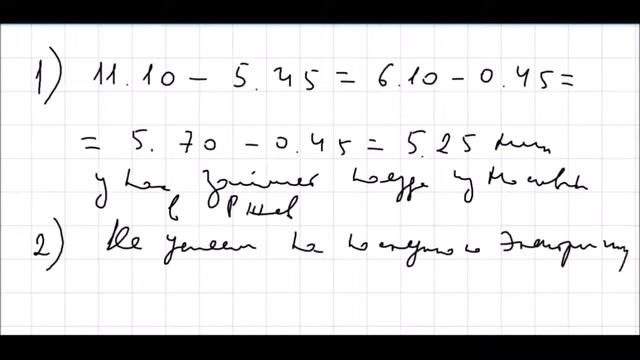 1) 11.10 - 5.45 = 6.10 - 0.45 =
= 5.70 - 0.45 = 5.25 мин
у нас займет поезд из Москвы
в Ржев
2) Не успеет на электричку